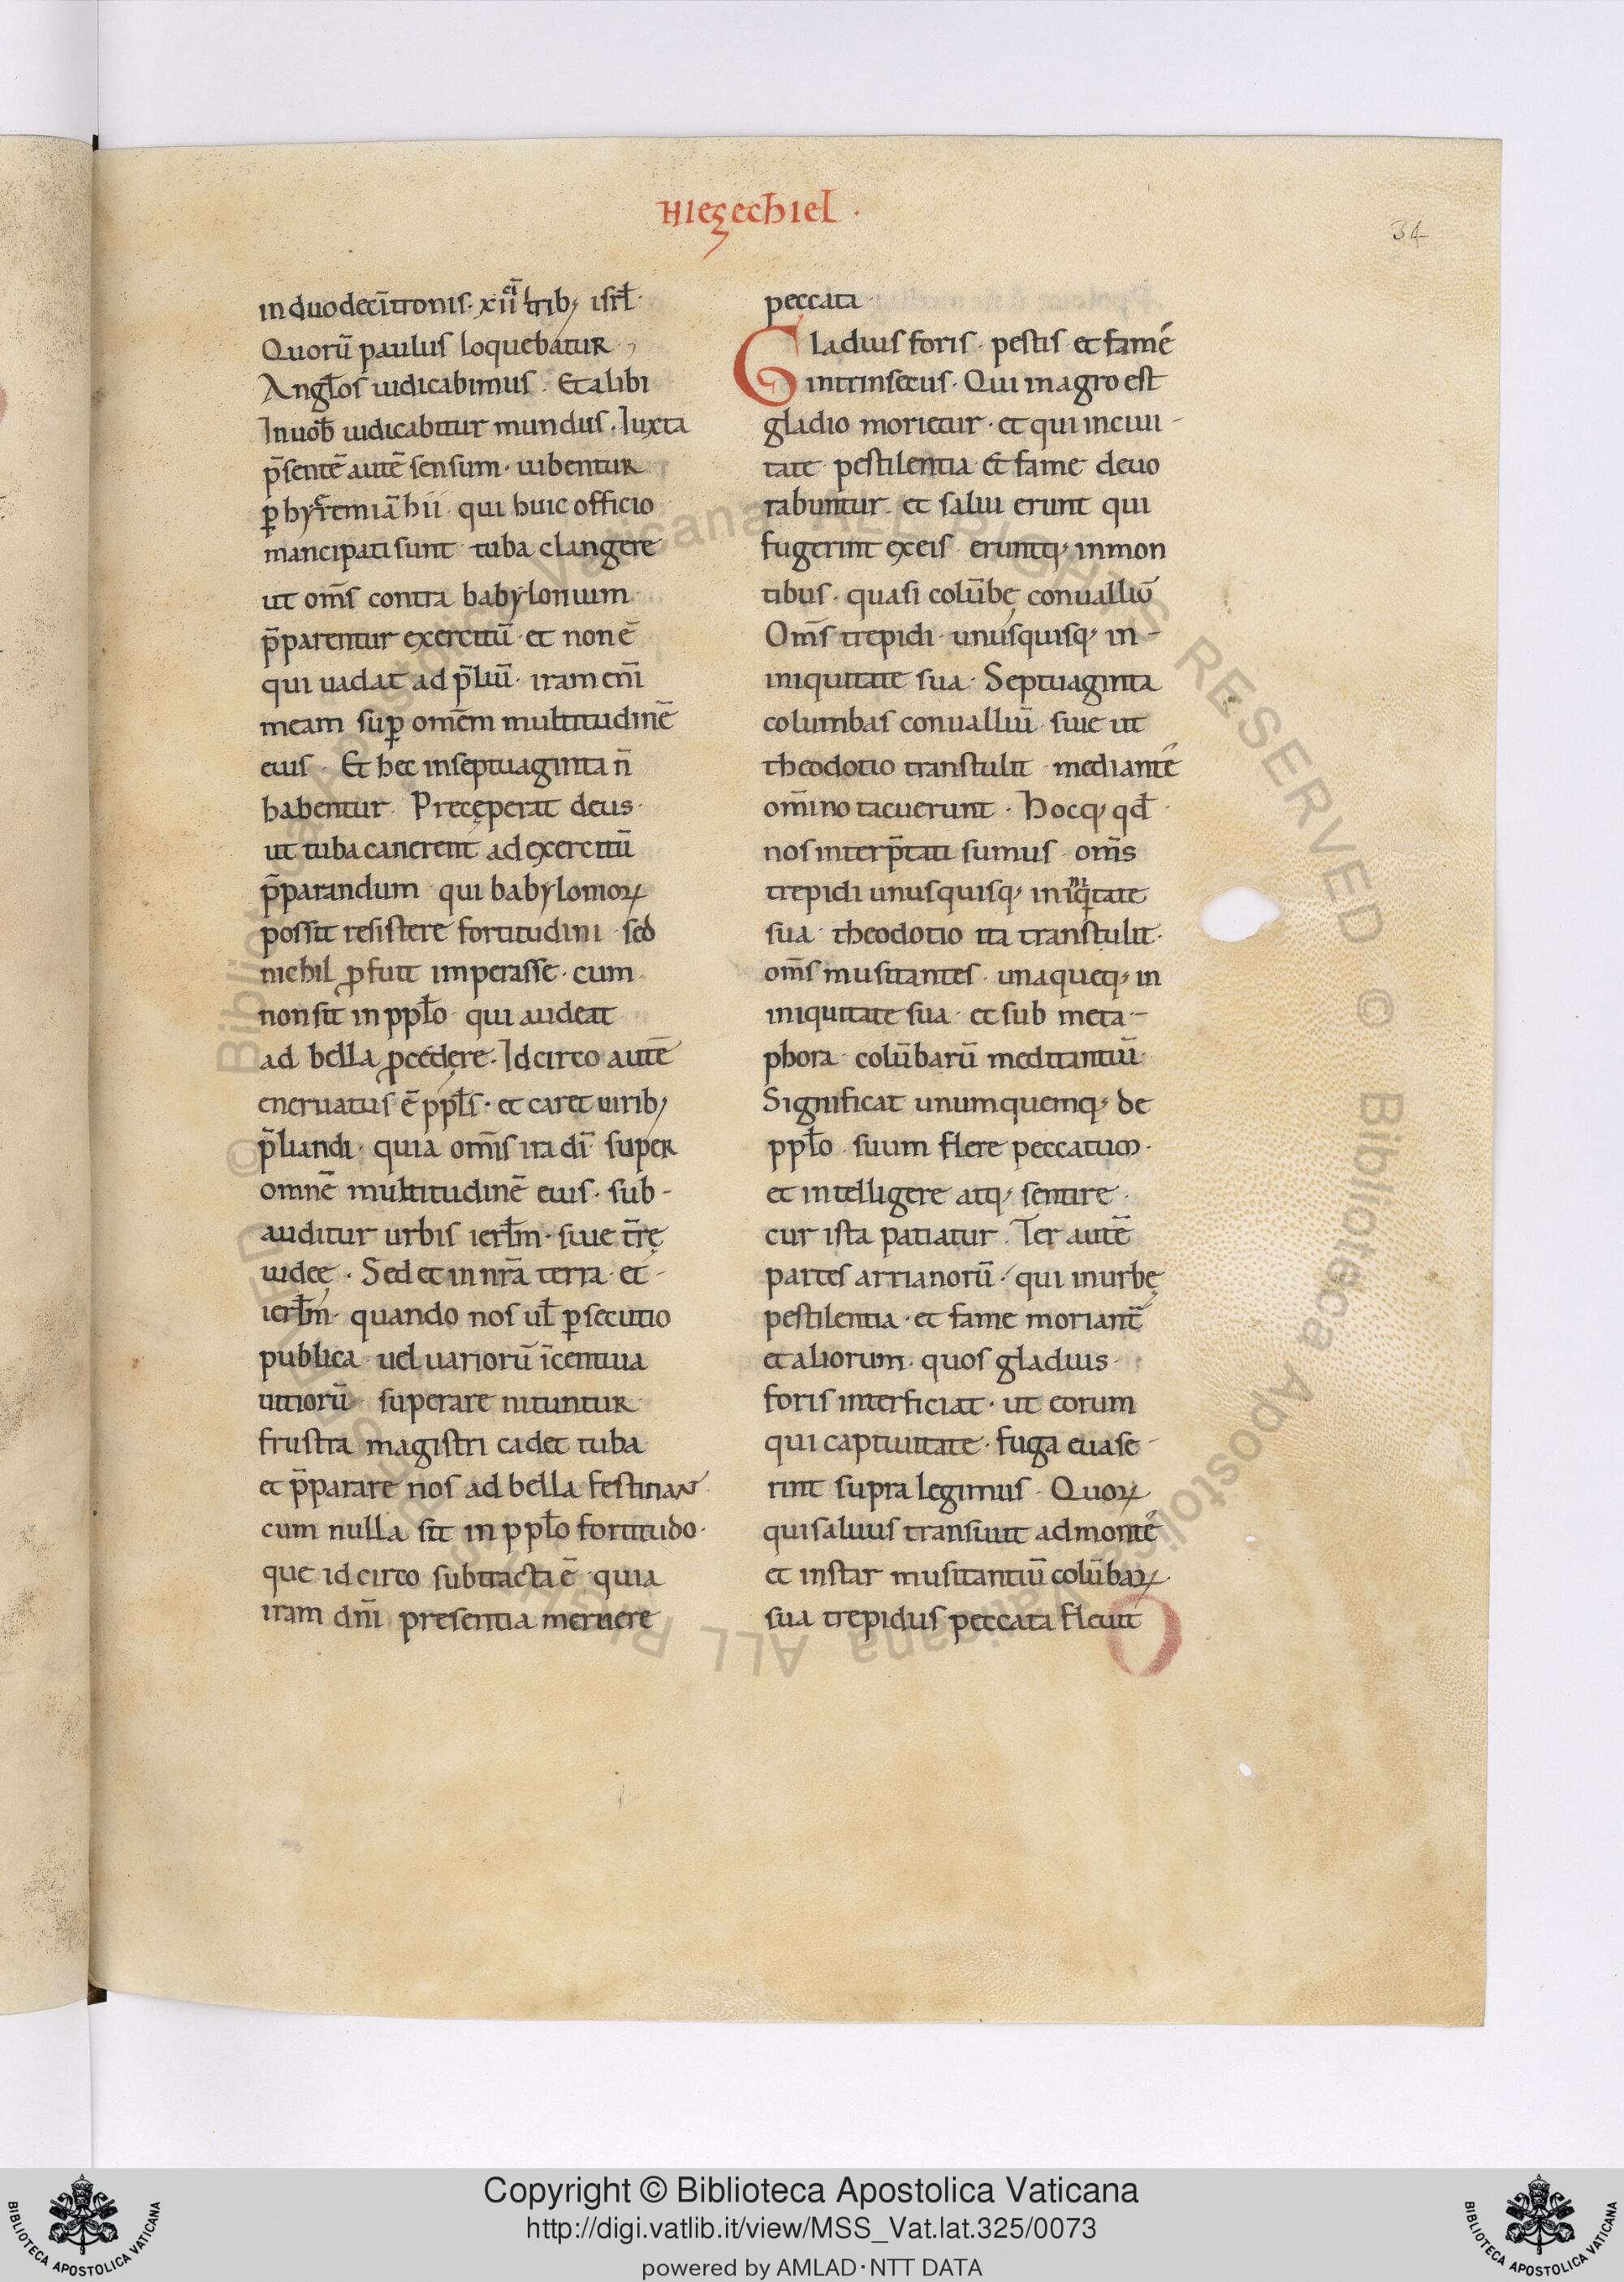 Hiezechiel ·
34
in duodeci̅ tronis · xii tribꝫ isrł ·
Quoru̅ paulus loquebatur ·
Angłos iudicabimus · Et alibi
In uob̅ iudicabitur mundus · Iuxta
p̅sente̅ aute̅ sensum · iubentur
ꝑ hyremia̅ hii · qui huic officio
mancipati sunt · tuba clangere
ut om̅s contra babylonium
p̅parentur exercitu̅ · et non e̅
qui uadat ad p̅liu̅ · iram eni̅
meam suꝑ ome̅m multitudine̅
eius · Et hec in septuaginta n̅
habentur · Precęperat deus ·
ut tuba canerent ad exercitu̅
p̅parandum · qui babylonioꝝ
possit resistere fortitudini · sed
nichil ꝓfuit imperasse · cum
non sit in ppło · qui audeat
ad bella ꝓcedere · Idcirco aute̅
eneruatus e̅ ppłs · et caret uiribꝫ
p̅liandi · quia omi̅s ira di̅ · super
omne̅ multitudine̅ eius · sub-
auditur urbis ierłm · siue t̅rę
iudeę · Sed et in nr̅a terra · et -
ierłm · quando nos uł ꝑsecutio
publica · uel uarioru̅ i̅centiua
uitioru̅ · superare nituntur
frustra magistri cadet tuba
et p̅parare nos ad bella festinant ·
cum nulla sit in ppło fortitudo ·
que idcirco subtracta e̅ · quia
iram dn̅i presentia meruere
peccata ·
Gladius foris · pestis et fame̅
intrinsecus · Qui in agro est
gladio morietur · et qui in ciui -
tate pestilentia et fame deuo
rabuntur · et salui erunt qui
fugerint ex eis · eruntqꝫ in mon
tibus · quasi colu̅bę conualliu̅
Om̅s trepidi · unusquisqꝫ in -
iniquitate sua · Septuaginta
columbas conualliu̅ · siue ut
theodotio transtulit · mediante̅
omi̅no tacuerunt · Hocqꝫ qđ ·
nos interp̅tati sumus · om̅s
trepidi unusquisqꝫ in iniqitate
sua · theodotio ita transtulit ·
om̅s musitantes · unaqueqꝫ in
iniquitate sua · et sub meta -
phora · colu̅baru̅ meditantiu̅ ·
Significat unumquemqꝫ de
ppło · suum flere peccatum ·
et intelligere atqꝫ sentire ·
cur ista patiatur · Ter aute̅
partes arrianoru̅ · qui in urbę
pestilentia · et fame moriant̅
et aliorum · quos gladius ·
foris interficiat · ut eorum
qui captiuitate · fuga euase -
rint supra legimus · Quoꝝ
qui saluus transiuit ad monte̅
et instar musitantiu̅ colu̅baꝝ ·
sua trepidus peccata fleuit
Copyright © Biblioteca Apostolica Vaticana
http://digi.vatlib.it/view/MSS_Vat.lat.325/0073
powered by AMLAD·NTT DATA
BIBLIOTECA APOSTOLICA VATICANA
BIBLIOTECA APOSTOLICA VATICANA
© Biblioteca Apostolica Vaticana ALL RIGHTS RESERVED © Biblioteca Apostolica Vaticana ALL RIGHTS RESERVED